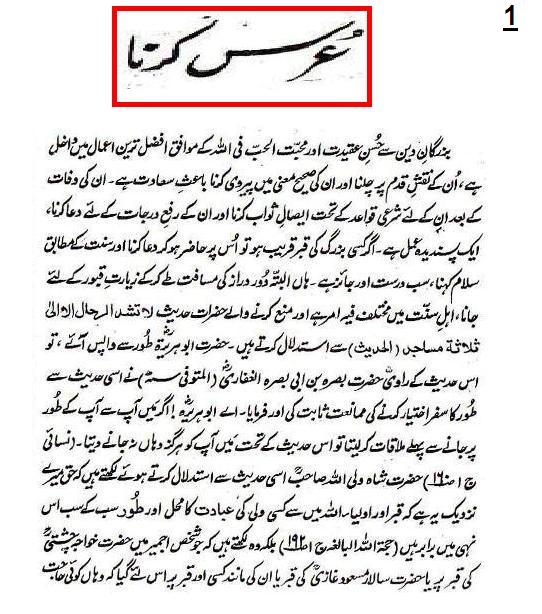 1
عُرس کرنا
بزرگانِ دین سے حُسنِ عقیدت اور محبّت الحبّ فی اللہ کے موافق افضل ترین اعمال میں داخل
ہے، اُن کے نقشِ قدم پر چلنا اور ان کی صحیح معنیٰ میں پیروی کرنا باعثِ سعادت ہے۔ ان کی وفات
کے بعد ان کے لئے شرعی قواعد کے تحت ایصالِ ثواب کرنا اور ان کے رفعِ درجات کے لئے دعا کرنا،
ایک پسندیدہ عمل ہے۔ اگر کسی بزرگ کی قبر قریب ہو تو اُس پر حاضر ہو کر دعا کرنا اور سنت کے مطابق
سلام کہنا، سب درست اور جائز ہے۔ ہاں البتہ دُور دراز کی مسافت طے کر کے زیارتِ قبور کے لئے
جانا، اہلِ سنّت میں مختلف فیہ امر ہے اور منع کرنے والے حضرات حدیث لا تشد الرحال الا الیٰ
ثلاثة مساجد (الحدیث) سے استدلال کرتے ہیں۔ حضرت ابو ہریرةؓ طُور سے واپس آئے، تو
اس حدیث کے راوی حضرت بصرہ بن ابی بصرہ الغفاریؓ (المتوفی سنہ) نے اسی حدیث سے
طُور کا سفر اختیار کرنے کی ممانعت ثابت کی اور فرمایا۔ اے ابو ہریرہؓ! اگر میں آپ سے آپ کے طُور
پر جانے سے پہلے ملاقات کر لیتا تو اس حدیث کے تحت میں آپ کو ہرگز وہاں نہ جانے دیتا۔ (نسائی
ج ۱ ص۱۶۰) حضرت شاہ ولی اللہ صاحبؒ اسی حدیث سے استدلال کرتے ہوئے لکھتے ہیں کہ حق میرے
نزدیک یہ ہے کہ قبر اور اولیاء اللہ میں سے کسی ولی کی عبادت کا محل اور طُور سب کے سب اس
نہی میں برابر ہیں (حجۃ اللہ البالغہ ج ۱ ص۱۹۲) بلکہ وہ لکھتے ہیں کہ جو شخص اجمیر میں حضرت خواجہ چشتیؒ
کی قبر پر یا حضرت سالار مسعود غازیؒ کی قبر یا ان کی مانند کسی اور قبر پر اس لئے گیا کہ وہاں کوئی حاجت